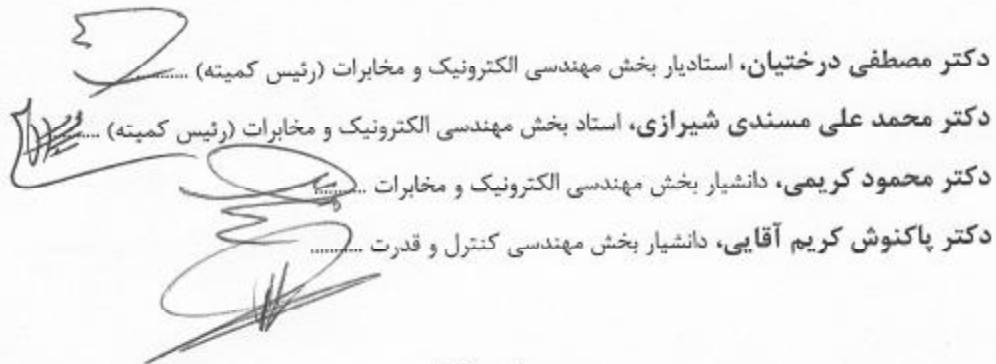 دکتر مصطفی درختیان، استادیار بخش مهندسی الکترونیک و مخابرات (رئیس کمیته) ............
دکتر محمد علی مسندی شیرازی، استاد بخش مهندسی الکترونیک و مخابرات (رئیس کمیته) ............
دکتر محمود کریمی، دانشیار بخش مهندسی الکترونیک و مخابرات ............
دکتر پاکنوش کریم آقایی، دانشیار بخش مهندسی کنترل و قدرت ............